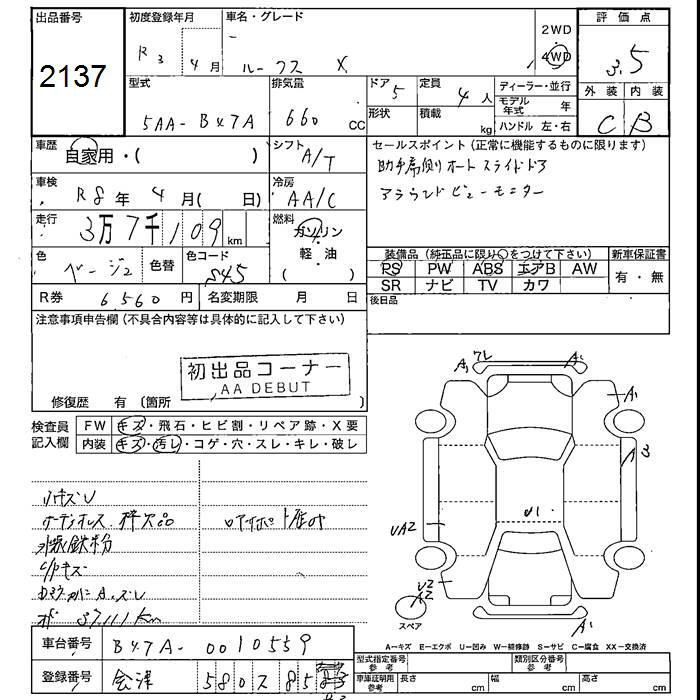 出品番号
2137
初度登録年月
R 3 年 4 月
車名・グレード
ルークス X
2WD
4WD
評価点
3.5
型式
5AA-B47A
排気量
660 CC
ドア 5
形状
定員 4 人
積載 kg
ディーラー・並行
モデル年式 年
ハンドル 左・右
外装 内装
C B
車歴
自家用・( )
シフト
A/T
セールスポイント(正常に機能するものに限ります)
助手席側オートスライドドア
アラウンドビューモニター
車検
R8 年 4 月( 日)
冷房
AA/C
走行
3万7千109 km
燃料
ガソリン
軽油
( )
色
ベージュ
色替
色コード
S45
装備品(純正品に限り○をつけて下さい)
PS PW ABS エアB AW
SR ナビ TV カワ
新車保証書
有・無
R券 6560 円
名変期限 月 日
後日品
注意事項申告欄(不具合内容等は具体的に記入して下さい)
初出品コーナー
AA DEBUT
修復歴 有(箇所 )
検査員
記入欄
FW キズ・飛石・ヒビ割・リペア跡・X要
内装 キズ・汚レ・コゲ・穴・スレ・キレ・破レ
外装鉄粉
37111km
A₁ フレ A₁
A₁
A3
UA2
U1
U2
A2
A₁
スペア
A-キズ E-エクボ U-凹み W-補修跡 S-サビ C-腐食 XX-交換済
車台番号 B47A-0010559
登録番号 会津 580
型式指定番号
参考
類別区分番号
参考
車庫証明用
参考
長さ cm 幅 cm 高さ cm